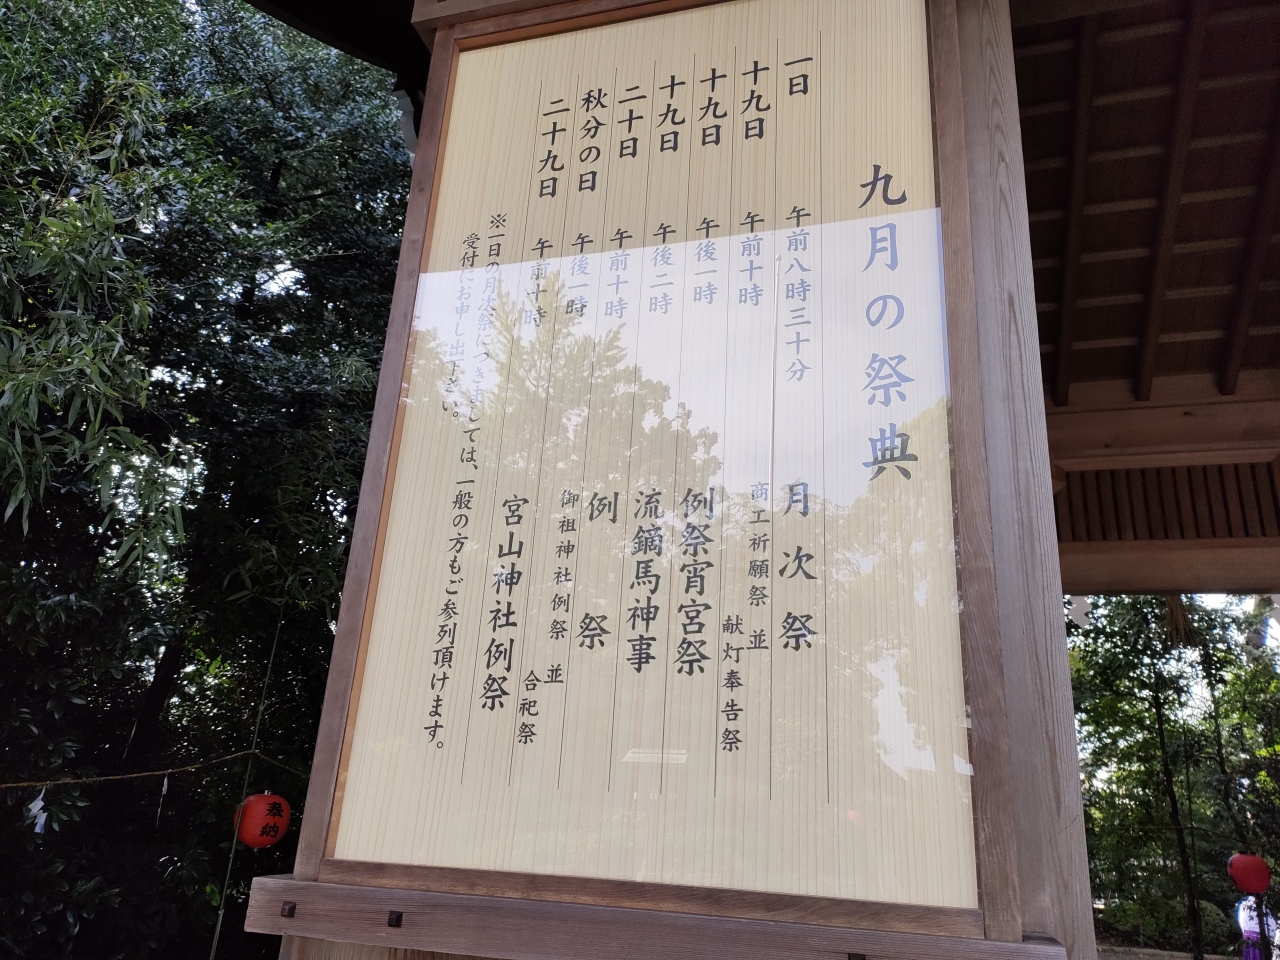 九月の祭典
一日 午前八時三十分 月次祭
十九日 午前十時 商工祈願祭 並 献灯奉告祭
十九日 午後一時 例祭宵宮祭
十九日 午後二時 流鏑馬神事
二十日 午前十時 例祭
秋分の日 午後一時 御祖神社例祭 並 合祀祭
二十九日 午前十時 宮山神社例祭
※一日の月次祭につきましては、一般の方もご参列頂けます。
受付にお申し出下さい。
奉納